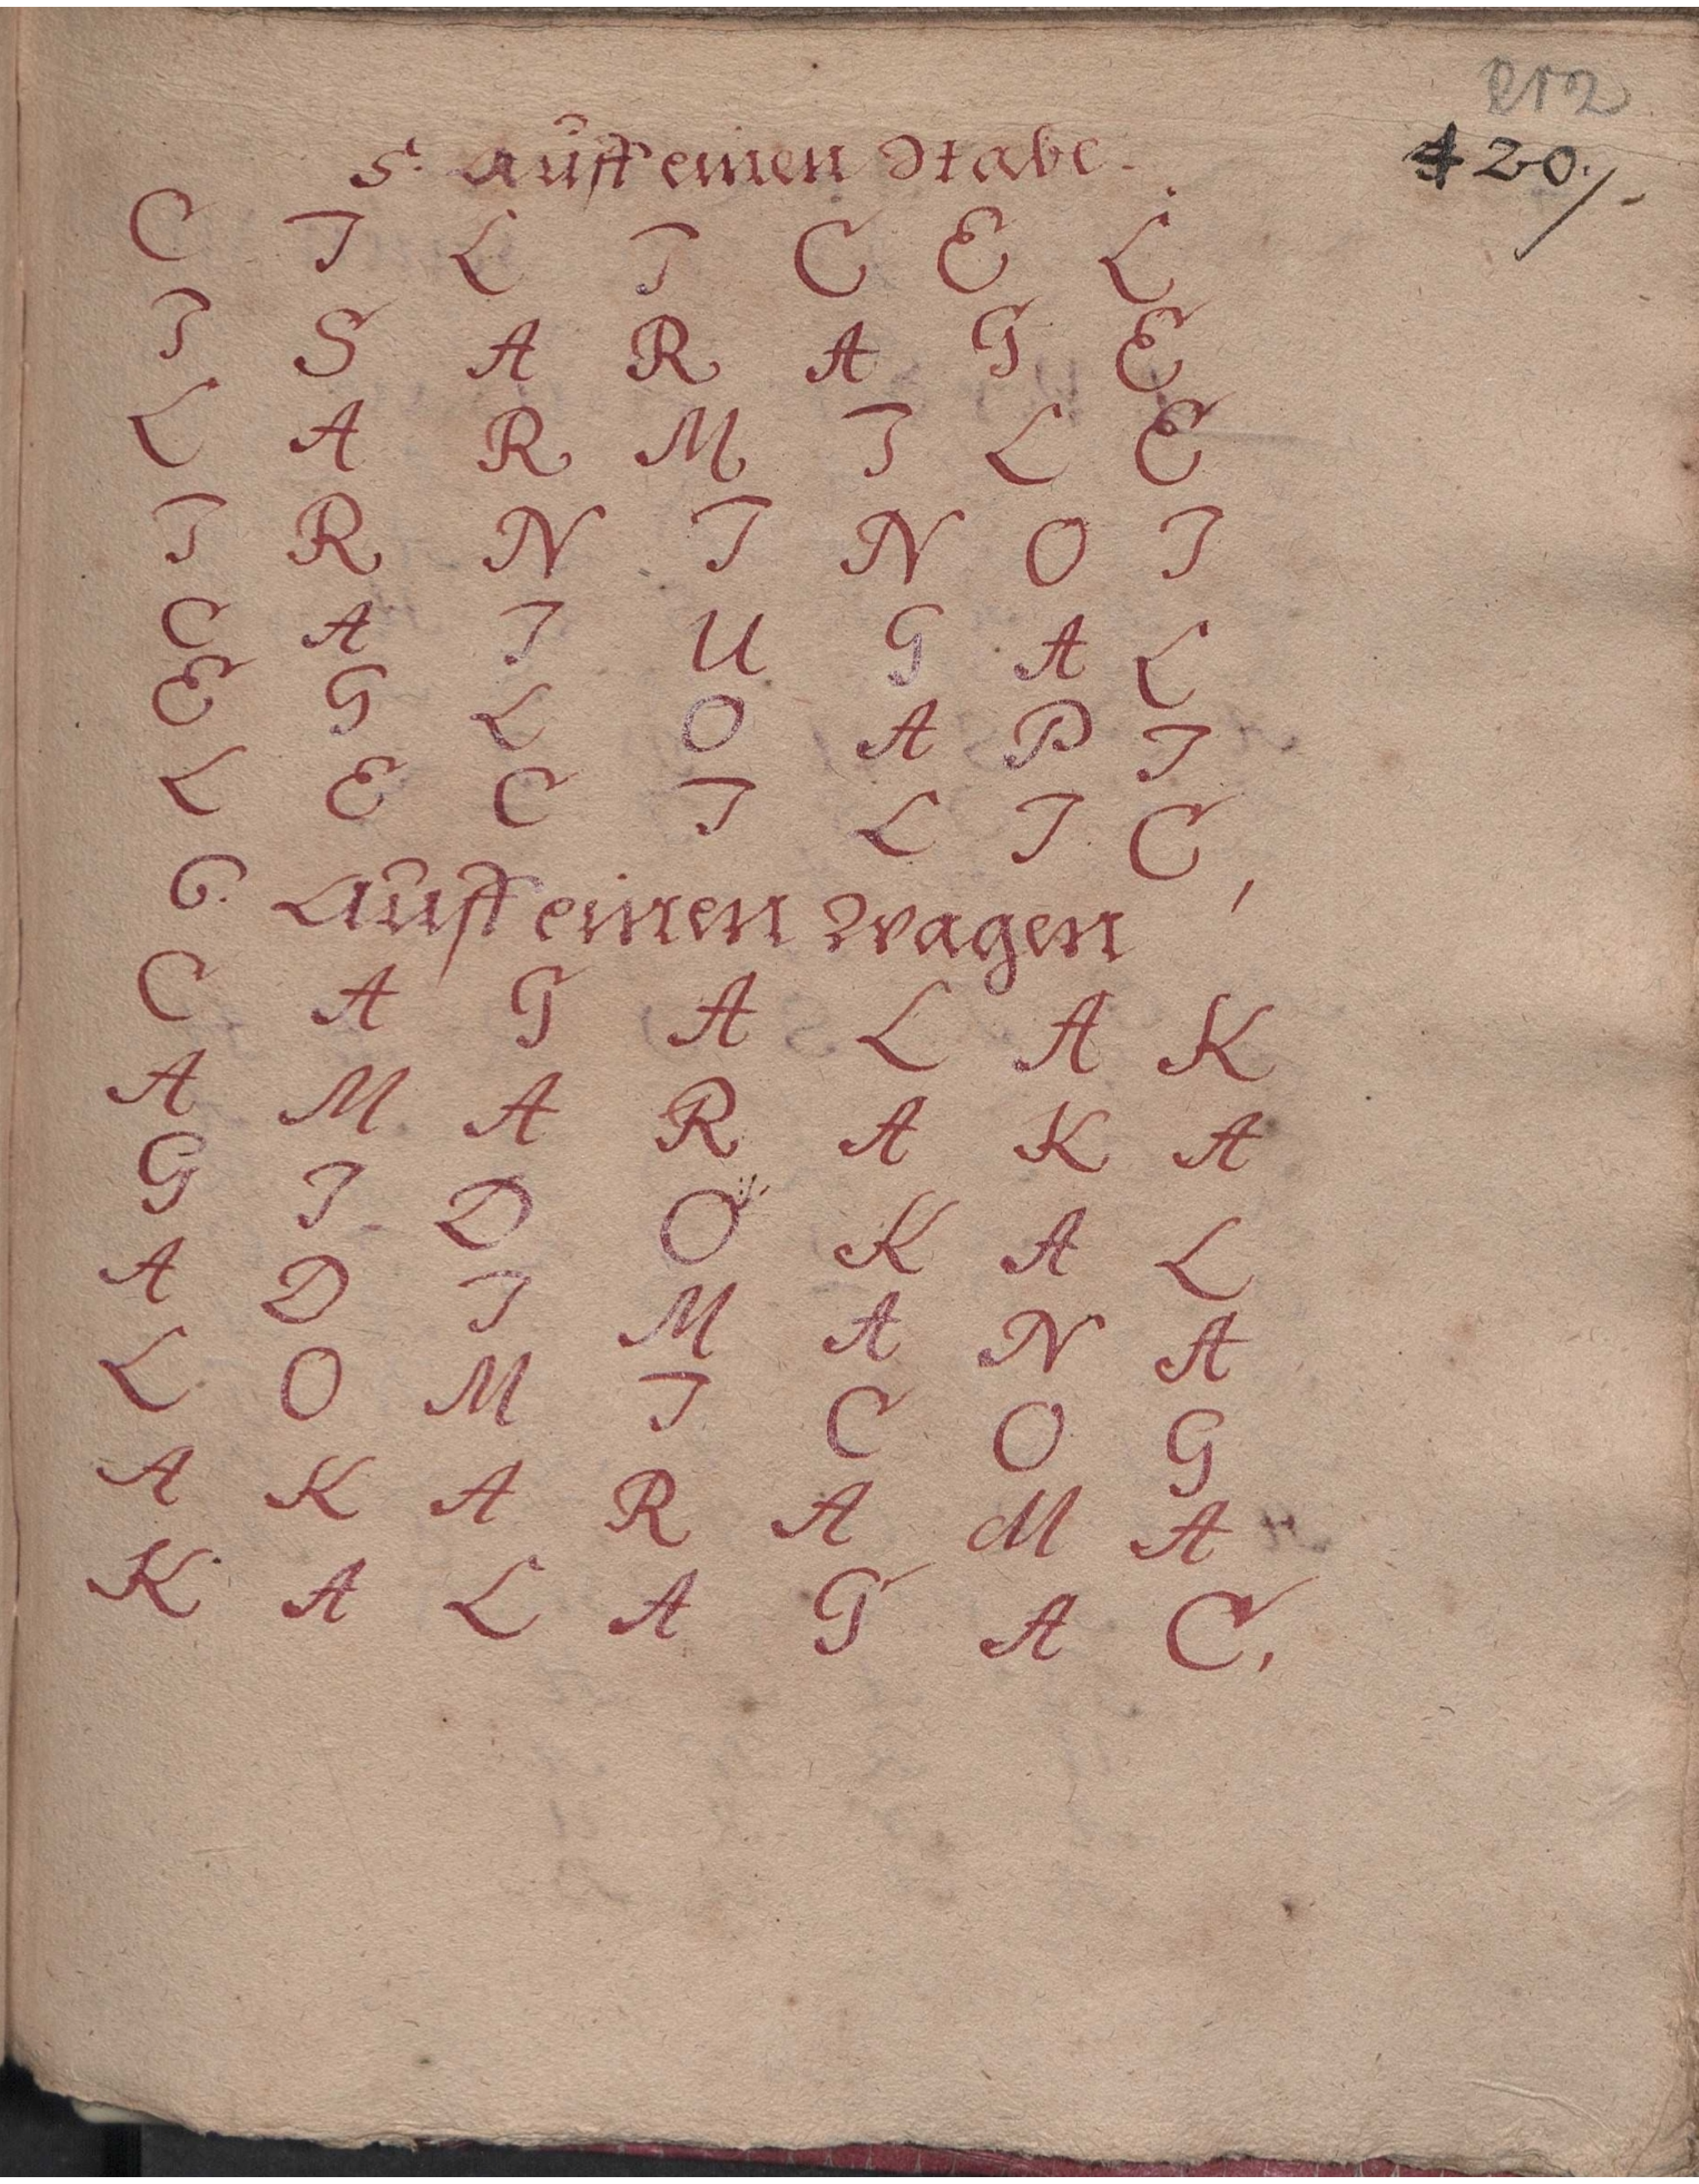 420./.
5. Auff einen Stabe.
C I L I C E L
I S A R A G E
L A R M I L E
I R N I N O I
C A I U G A L
E G L O A P I
L E C I L I C,
6. Auff einen Wagen
C A G A L A K
A M A R A K A
G I D O K A L
A D I M A N A
L O M I C O G
A K A R A M A
K A L A G A C.